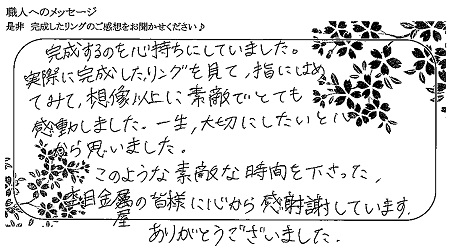 職人へのメッセージ
是非 完成したリングのご感想をお聞かせください♪
完成するのを心持ちにしていました。
実際に完成したリングを見て、指にはめ
てみて、想像以上に素敵でとても
感動しました。一生、大切にしたいと心
から思いました。
このような素敵な時間を下さった、
杢目金屋の皆様に心から感謝しています。
ありがとうございました。